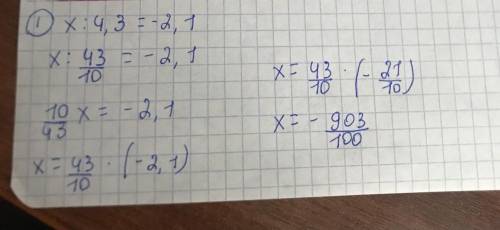 ① x : 4,3 = -2,1
x : 43/10 = -2,1
10/43 x = -2,1
x = 43/10 · (-2,1)
x = 43/10 · (-21/10)
x = - 903/100